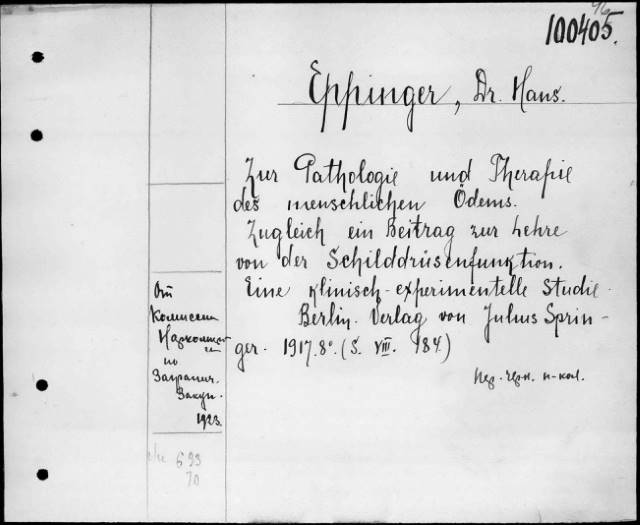 100405.
Eppinger, Dr. Hans.
Zur Pathologie und Therapie
des menschlichen Ödems.
Zugleich ein Beitrag zur Lehre
von der Schilddrüsenfunktion.
Eine klinisch-experimentelle Studie.
Berlin. Verlag von Julius Sprin-
ger. 1917. 8°. (S. VIII. 184.)
От
Комиссии
по
Загранич.
Закуп.
1923.
693
70